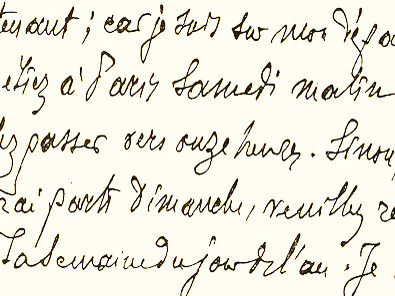 tenant ; car je suis sur mon dépa
étiez à Paris Samedi matin
ez passer vers onze heures. Sinon,
rai parti Dimanche, veuillez re
la semaine du jour de l'an. Je